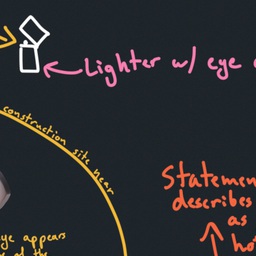 Lighter w/ eye
construction site near
Statemen
describes
as
ho
eye appears
of the